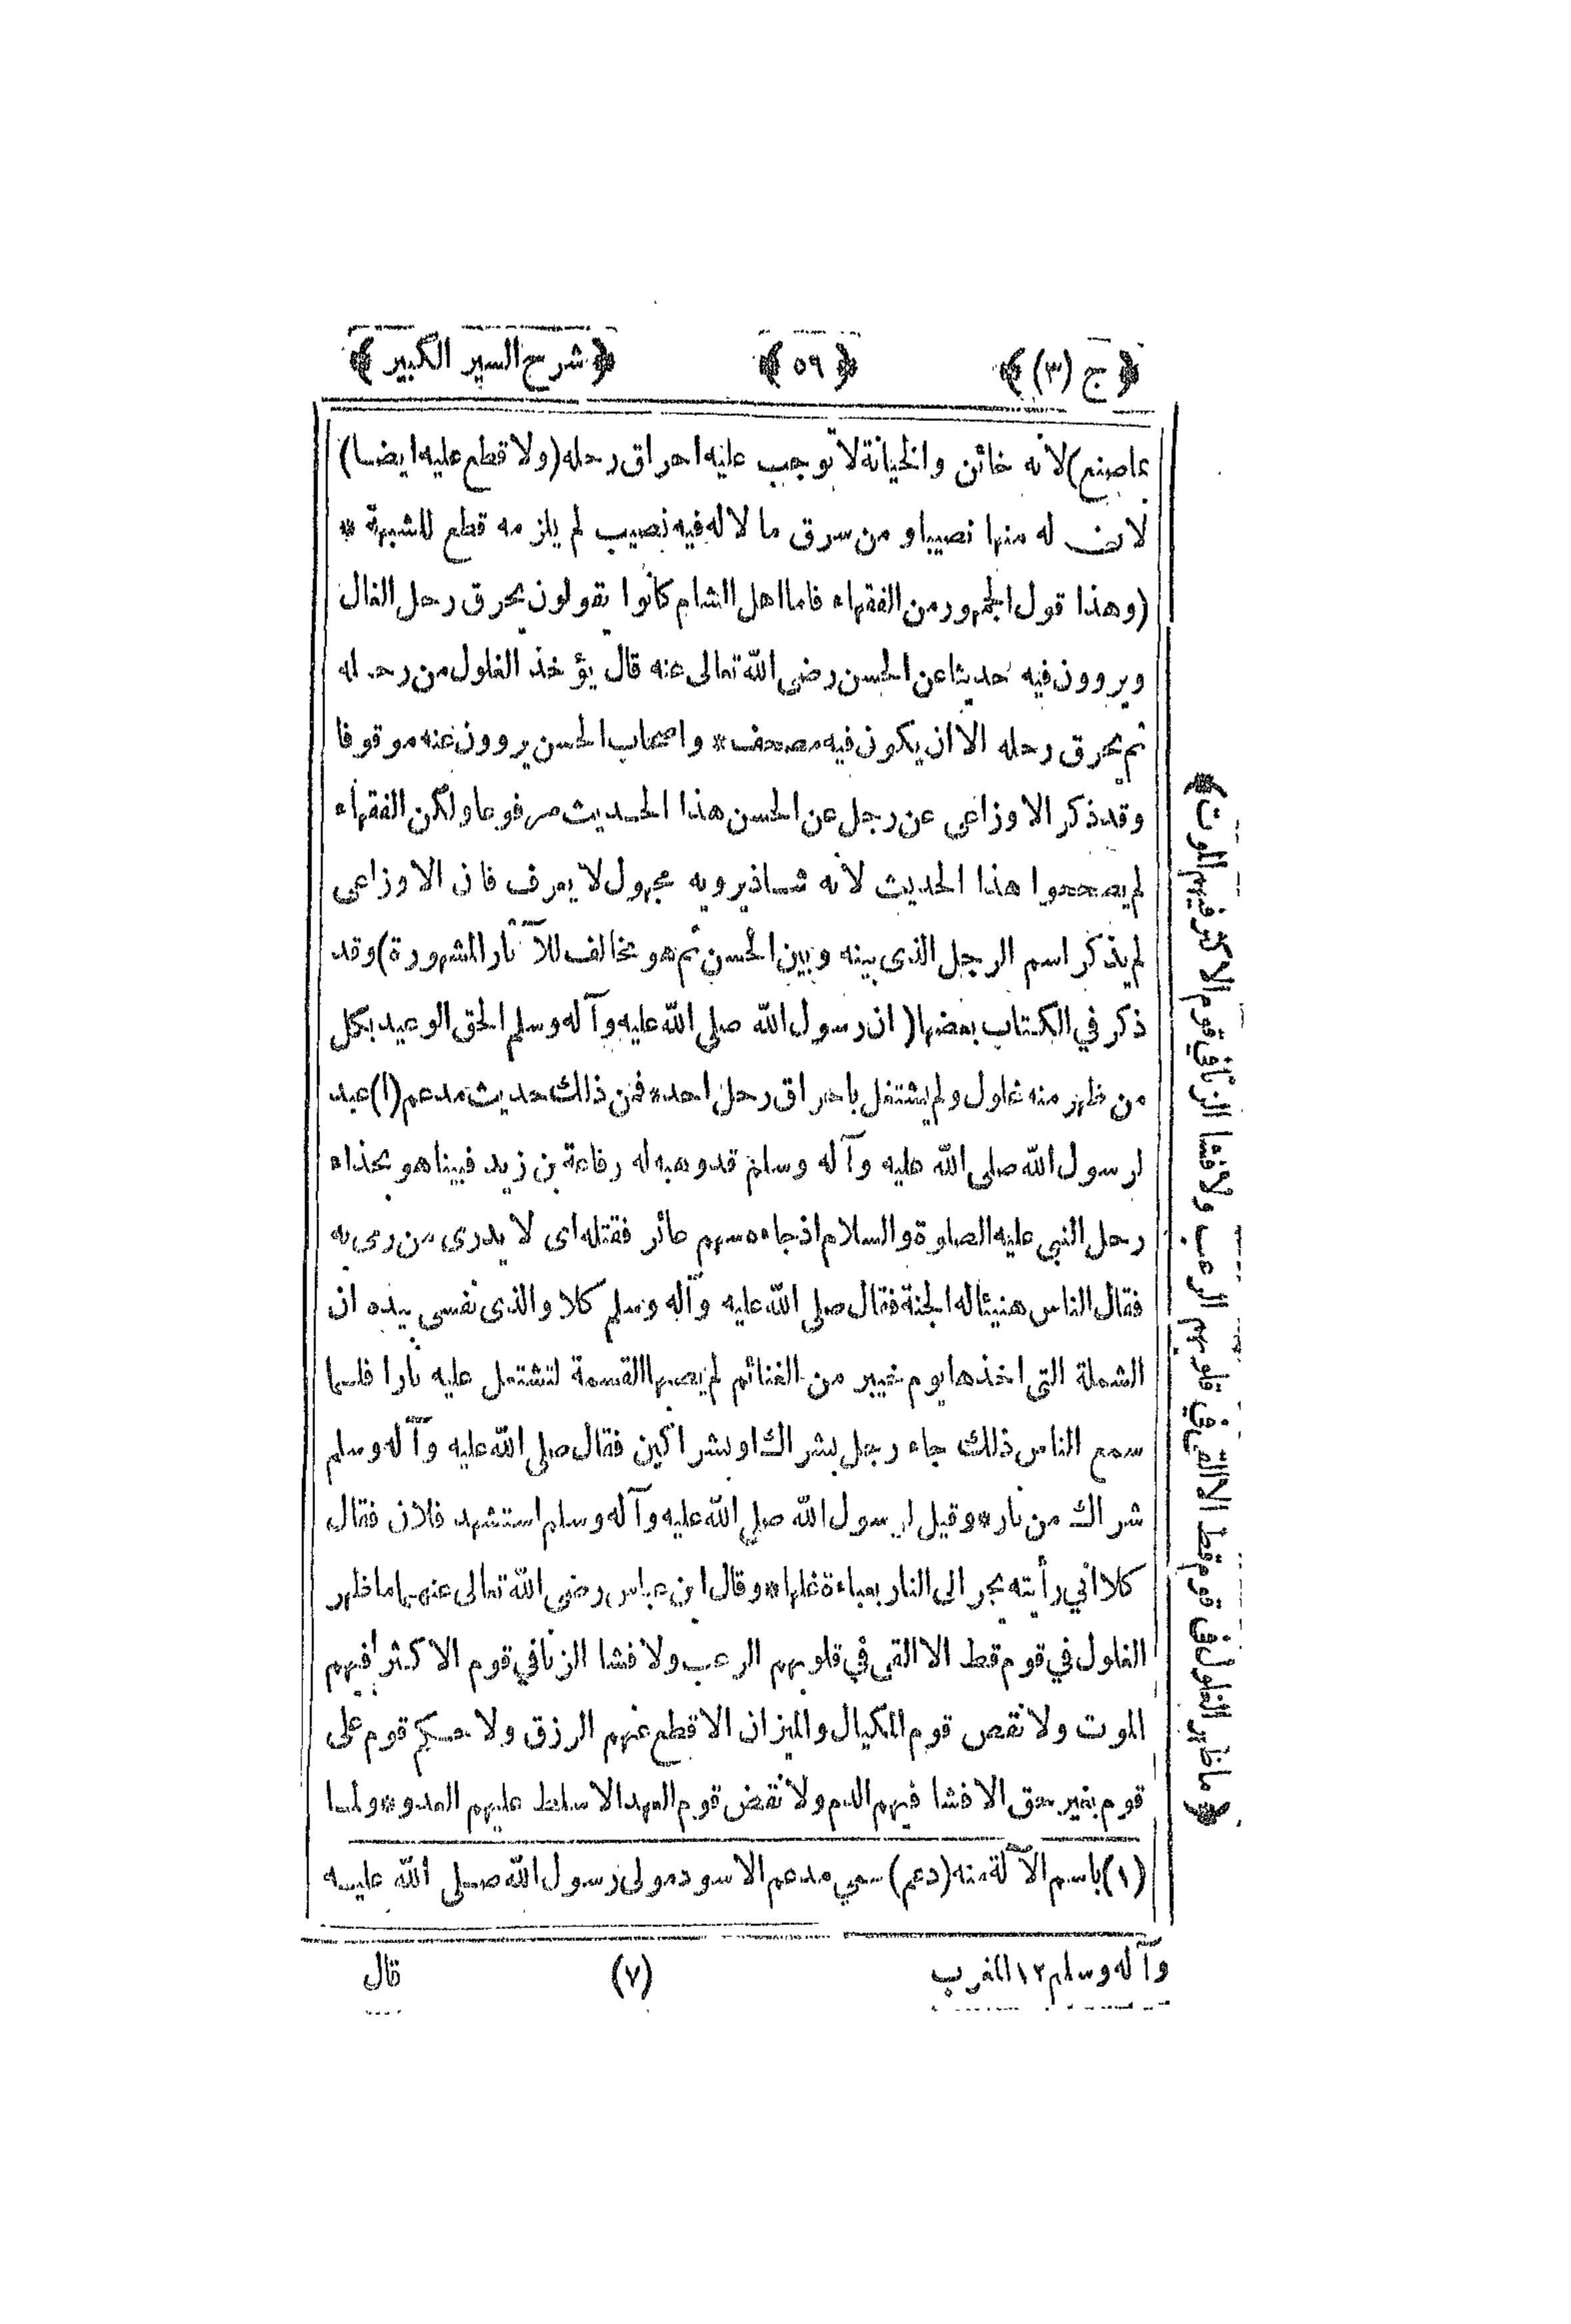 ﴿ ج (٣) ﴾ ﴿ ٥٩ ﴾ ﴿ شرح السير الكبير ﴾
عاصنع) لانه خائن والخيانة لا توجب عليه احراق رحله (ولا قطع عليه ايضا)
لان له منها نصيبا ومن سرق ما لا له فيه نصيب لم يلزمه قطع للشبهة *
(وهذا قول الجمهور من الفقهاء فاما اهل الشام كانوا يقولون يحرق رحل الغال
ويروون فيه حديثا عن الحسن رضى الله تعالى عنه قال يؤخذ الغلول من رحله
ثم يحرق رحله الا ان يكون فيه مصحف * واصحاب الحسن يروون عنه موقوفا
وقد ذكر الاوزاعى عن رجل عن الحسن هذا الحديث مرفوعا ولكن الفقهاء
لم يصححوا هذا الحديث لانه شاذ يرويه مجهول لا يعرف فان الاوزاعى
لم يذكر اسم الرجل الذى بينه وبين الحسن ثم هو مخالف للآثار المشهورة) وقد
ذكر في الكتاب بعضها (ان رسول الله صلى الله عليه وآله وسلم الحق الوعيد بكل
من ظهر منه غلول ولم يشتغل باحراق رحل احد * فمن ذلك حديث مدعم (١) عبد
لرسول الله صلى الله عليه وآله وسلم قد وهبه له رفاعة بن زيد فبينا هو بحذاء
رحل النبي عليه الصلوة والسلام اذ جاءه سهم عائر فقتله اى لا يدرى من رمى به
فقال الناس هنيئا له الجنة فقال صلى الله عليه وآله وسلم كلا والذى نفسى بيده ان
الشملة التى اخذها يوم خيبر من الغنائم لم يصبها القسمة لتشتعل عليه نارا فلما
سمع الناس ذلك جاء رجل بشراك او بشراكين فقال صلى الله عليه وآله وسلم
شراك من نار * وقيل لرسول الله صلى الله عليه وآله وسلم استشهد فلان فقال
كلا انى رأيته يجر الى النار بعباءة غلها * وقال ابن عباس رضى الله تعالى عنهما ما ظهر
الغلول في قوم قط الا القى في قلوبهم الرعب ولا فشا الزنا في قوم الا كثر فيهم
الموت ولا نقص قوم المكيال والميزان الا قطع عنهم الرزق ولا حكم قوم على
قوم بغير حق الا فشا فيهم الدم ولا نقض قوم العهد الا سلط عليهم العدو * ولما
﴿ ما ظهر الغلول في قوم قط الا القى في قلوبهم الرعب ولا فشا الزنا في قوم الا كثر فيهم الموت ﴾
(١) باسم الآلة منه (دعم) سمي مدعم الاسود مولى رسول الله صلى الله عليه
وآله وسلم ١٢ المغرب (٧) قال